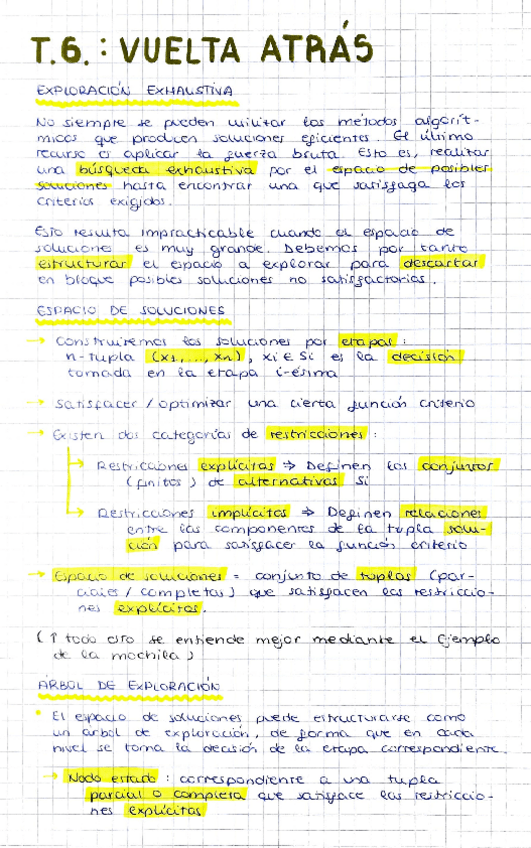 T.6.: VUELTA ATRÁS
EXPLORACIÓN EXHAUSTIVA
No siempre se pueden utilizar los métodos algorít-
micos que producen soluciones eficientes. El último
recurso es aplicar la fuerza bruta. Esto es, realizar
una búsqueda exhaustiva por el espacio de posibles
soluciones hasta encontrar una que satisfaga los
criterios exigidos.
Esto resulta impracticable cuando el espacio de
soluciones es muy grande. Debemos por tanto
estructurar el espacio a explorar para descartar
en bloque posibles soluciones no satisfactorias.
ESPACIO DE SOLUCIONES
→ Construiremos las soluciones por etapas:
n-tupla (x1,...,xn), xi ∈ Si es la decisión
tomada en la etapa i-ésima
→ Satisfacer / optimizar una cierta función criterio
→ Existen dos categorías de restricciones:
→ Restricciones explícitas ⇒ Definen los conjuntos
(finitos) de alternativas Si
→ Restricciones implícitas ⇒ Definen relaciones
entre las componentes de la tupla solu-
ción para satisfacer la función criterio
→ Espacio de soluciones = conjunto de tuplas (par-
ciales / completas) que satisfacen las restriccio-
nes explícitas.
(↑ todo esto se entiende mejor mediante el Ejemplo
de la mochila)
ARBOL DE EXPLORACIÓN
• El espacio de soluciones puede estructurarse como
un árbol de exploración, de forma que en cada
nivel se toma la decisión de la etapa correspondiente.
→ Nodo estado: correspondiente a una tupla
parcial o completa que satisface las restriccio-
nes explícitas